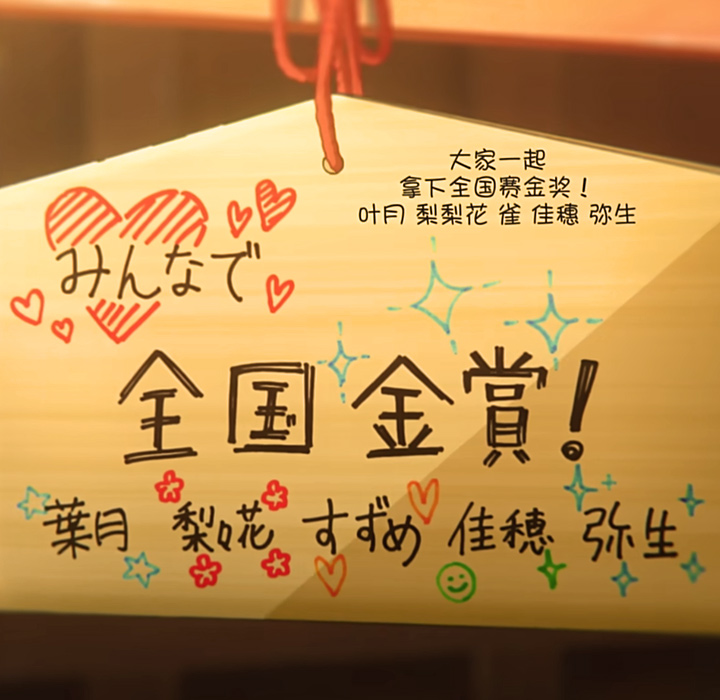 大家一起
拿下全国赛金奖！
叶月 梨梨花 雀 佳穗 弥生
みんなで
全国金賞！
葉月 梨々花 すずめ 佳穂 弥生